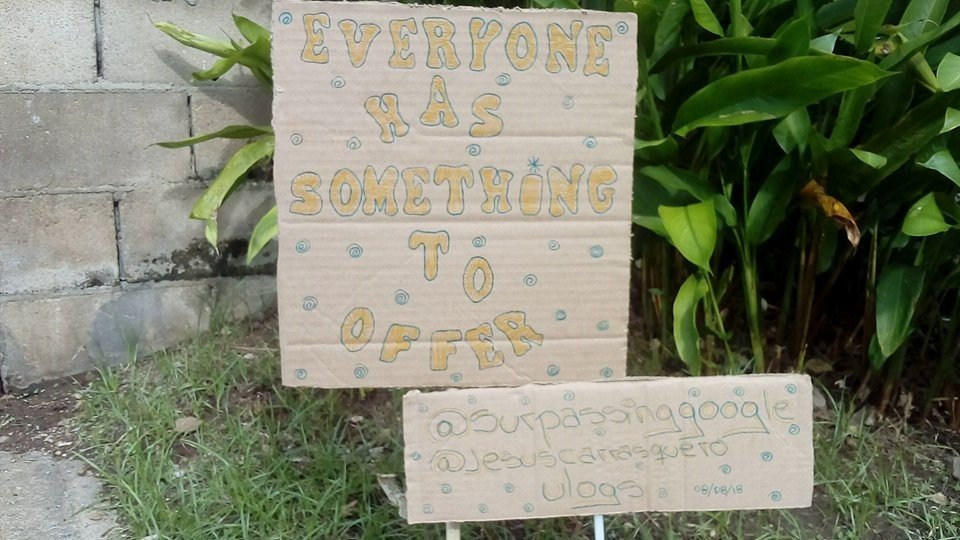 EVERYONE
HAS
SOMETHING
TO
OFFER
@surpassinggoogle
@Jesuscarrasquero
ulogs 08/08/18